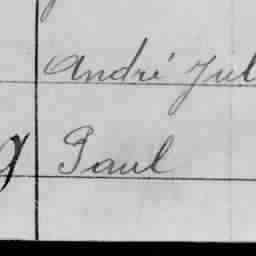 André Jul
Paul